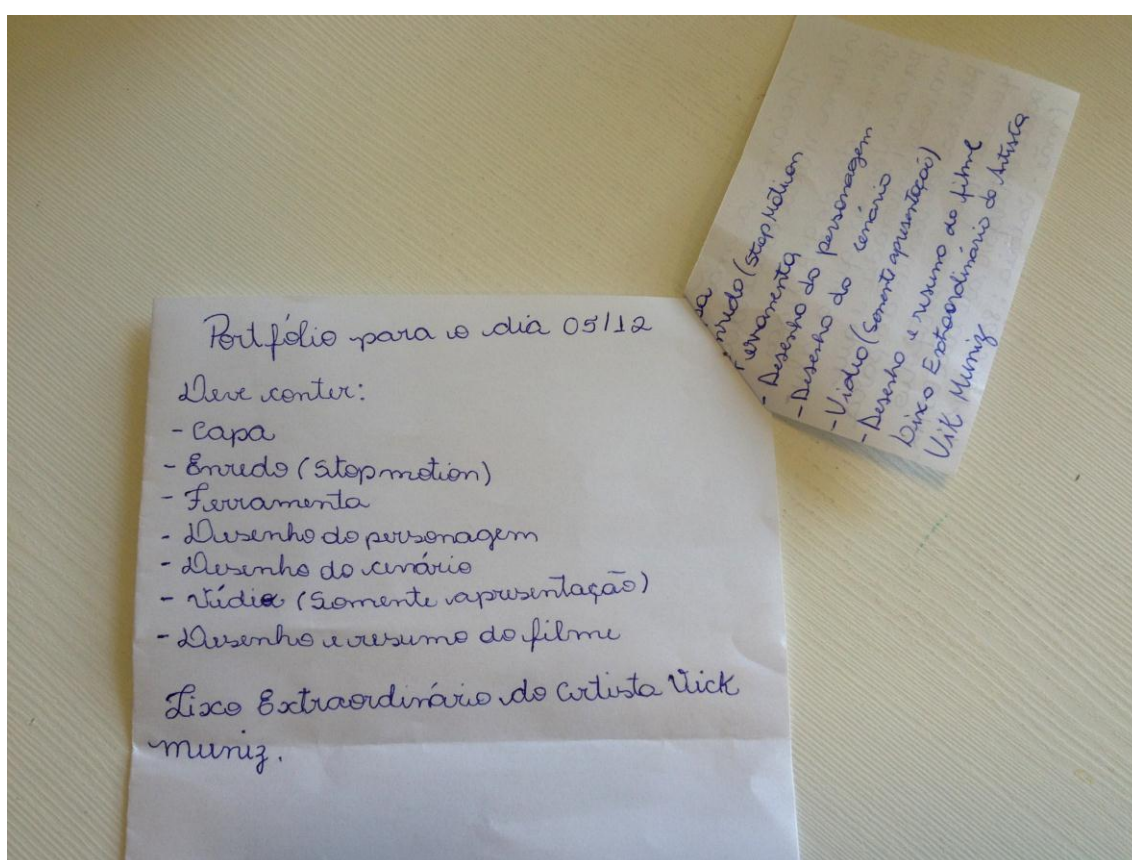 Portfólio para o dia 05/12
Deve conter:
- Capa
- Enredo (Stopmotion)
- Ferramenta
- Desenho do personagem
- Desenho do cenário
- Vídio (Somente apresentação)
- Desenho e resumo do filme
Lixo Extraordinário do artista Vick
muniz.
(Stop Motion
- Desenho do personagem
- Desenho do cenário
- Vidio (Somente apresentação)
- Desenho e resumo do filme
Lixo Extraordinário do Artista
Vik Muniz